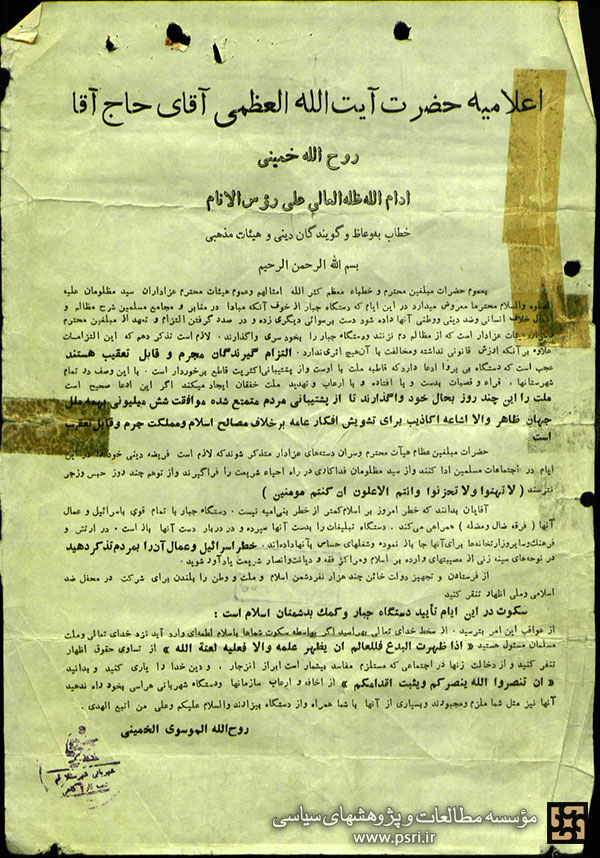 اعلامیه حضرت آیت‌الله العظمی آقای حاج آقا
روح الله خمینی
ادام الله ظله العالی علی رؤس الانام
خطاب به وعاظ و گویندگان دینی و هیئات مذهبی
بسم الله الرحمن الرحیم
بعموم حضرات مبلغین محترم و خطباء معظم کثر الله امثالهم وعموم هیئات محترم عزاداران سید مظلومان علیه
الصلوه والسلام محترما معروض میدارد در این ایام که دستگاه جبار از خوف آنکه مبادا در منابر و مجامع مسلمین شرح مظالم و
اعمال خلاف انسانی وضد دینی ووطنی آنها داده شود دست برسوائی دیگری زده و در صدد گرفتن التزام و تعهد از مبلغین محترم
هیئات عزادار است که از مظالم دم نزنند ودستگاه جبار را بخود سری واگذارند. لازم است تذکر دهم که این التزامات
علاوه بر آنکه ارزش قانونی نداشته ومخالفت با آن هیچ اثری ندارد. التزام گیرندگان مجرم و قابل تعقیب هستند
عجب است که دستگاه بی پروا ادعا دارد که قاطبه ملت با اوست واز پشتیبانی اکثریت قاطع برخوردار است. با این وصف در تمام
شهرستانها، قراء و قصبات بدست و پا افتاده و با ارعاب وتهدید ملت خفقان ایجاد میکند اگر این ادعا صحیح است
ملت را این چند روز بحال خود واگذارند تا از پشتیبانی مردم متمتع شده موافقت شش میلیونی بهمه ملل
جهان ظاهر والا اشاعه اکاذیب برای تشویش افکار عامه برخلاف مصالح اسلام ومملکت جرم وقابل تعقیب
است
حضرات مبلغین عظام هیآت محترم وسران دسته‌های عزادار متذکر شوند که لازم است فریضه دینی خود را در این
ایام در اجتماعات مسلمین ادا کنند واز سید مظلومان فداکاری در راه احیاء شریعت را فراگیرند واز توهم چند روز حبس وزجر
نترسند (لا تهنوا ولا تحزنوا وانتم الاعلون ان کنتم مومنین)
آقایان بدانند که خطر امروز بر اسلام کمتر از خطر بنی‌امیه نیست. دستگاه جبار با تمام قوی باسرائیل و عمال
آنها (فرقه ضال ومضله) همراهی می‌کند. دستگاه تبلیغات را بدست آنها سپرده و در دربار دست آنها باز است. در ارتش و
فرهنگ وسایر وزارتخانه‌ها برای آنها جا باز نموده وشغلهای حساس بآنها داده‌اند. خطر اسرائیل و عمال آن را بمردم تذکر دهید
در نوحه‌های سینه زنی از مصیبتهای وارده بر اسلام ومراکز فقه و دیانت وانصار شریعت یادآور شوید.
از فرستادن و تجهیز دولت خائن چند هزار نفر دشمن اسلام و ملت و وطن را بلندن برای شرکت در محفل ضد
اسلامی وملی اظهار تنفر کنید
سکوت در این ایام تأیید دستگاه جبار و کمک بدشمنان اسلام است:
از عواقب این امر بترسید. از سخط خدای تعالی بهراسید اگر بواسطه سکوت شماها باسلام لطمه‌ای وارد آید نزد خدای تعالی وملت
مسلمان مسئول هستید «اذا ظهرت البدع فللعالم ان یظهر علمه والا فعلیه لعنة الله» از تساوی حقوق اظهار
تنفر کنید و از دخالت زنها در اجتماعی که مستلزم مفاسد بیشمار است ابراز انزجار، و دین خدا را یاری کنید و بدانید
«ان تنصروا الله ینصرکم ویثبت اقدامکم» از اخافه و ارعاب سازمانها ودستگاه شهربانی هراسی بخود راه ندهید
آنها نیز مثل شما ملزم ومجبورند وبسیاری از آنها با شما همراه واز دستگاه بیزارند والسلام علیکم وعلی من اتبع الهدی.
روح‌الله الموسوی الخمینی
شهربانی شهرستان قم
مؤسسه مطالعات و پژوهشهای سیاسی
www.psri.ir